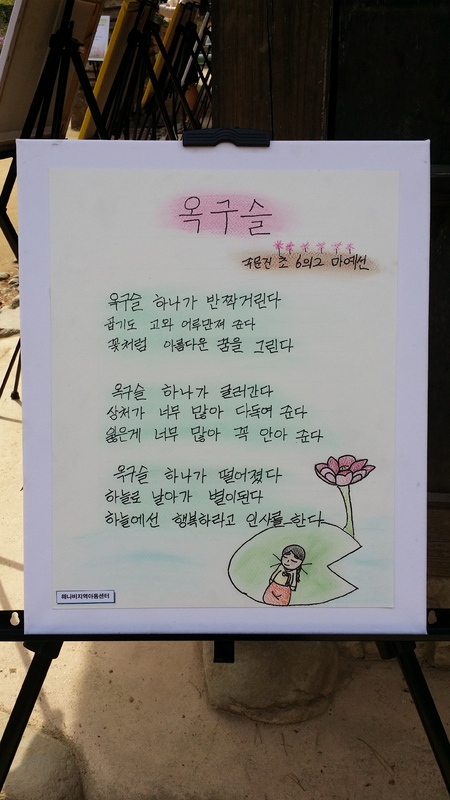 옥구슬
초 6의2 마예선
옥구슬 하나가 반짝거린다
곱기도 고와 어루만져 준다
꽃처럼 아름다운 꿈을 그린다
옥구슬 하나가 굴러간다
상처가 너무 많아 다독여 준다
싫은게 너무 많아 꼭 안아 준다
옥구슬 하나가 떨어졌다
하늘로 날아가 별이된다
하늘에선 행복하라고 인사를 한다
해나비지역아동센터